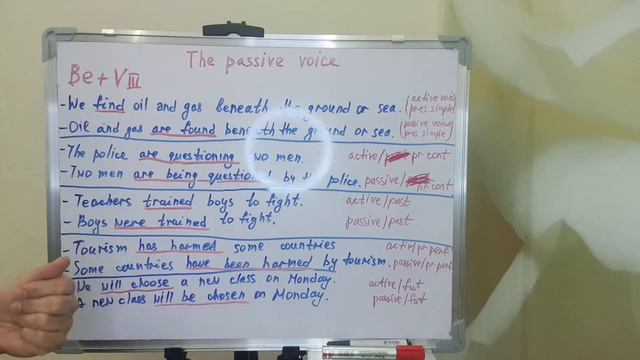 The passive voice
Be + VIII
- We find oil and gas beneath the ground or sea. (active voice pres. simple)
- Oil and gas are found beneath the ground or sea. (passive voice pres simple)
- The police are questioning two men. active/ pr cont
- Two men are being questioned by the police. passive/ pr cont
- Teachers trained boys to fight. active/past
- Boys were trained to fight. passive/past
- Tourism has harmed some countries active/pr perf
- Some countries have been harmed by tourism. passive/pr perf
We will choose a new class on Monday. active/fut
A new class will be chosen on Monday. passive/fut